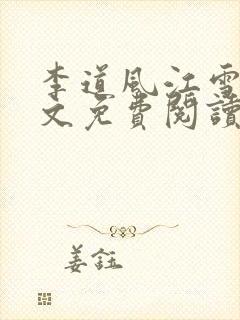 李道風江雪
文免費閱讀
姜鈺